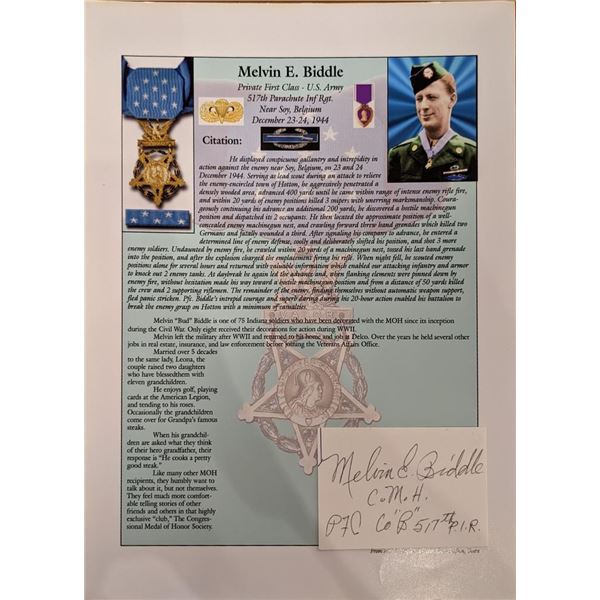 Melvin E. Biddle
Private First Class - U.S. Army
517th Parachute Inf Rgt.
Near Soy, Belgium
December 23-24, 1944
Citation:
He displayed conspicuous gallantry and intrepidity in
action against the enemy near Soy, Belgium, on 23 and 24
December 1944. Serving as lead scout during an attack to relieve
the enemy-encircled town of Hotton, he aggressively penetrated a
densely wooded area, advanced 400 yards until he came within range of intense enemy rifle fire,
and within 20 yards of enemy positions killed 3 snipers with unerring marksmanship. Coura-
geously continuing his advance an additional 200 yards, he discovered a hostile machinegun
position and dispatched its 2 occupants. He then located the approximate position of a well-
concealed enemy machinegun nest, and crawling forward threw hand grenades which killed two
Germans and fatally wounded a third. After signaling his company to advance, he entered a
determined line of enemy defense, coolly and deliberately shifted his position, and shot 3 more
enemy soldiers. Undaunted by enemy fire, he crawled within 20 yards of a machinegun nest, tossed his last hand grenade
into the position, and after the explosion charged the emplacement firing his rifle. When night fell, he scouted enemy
positions alone for several hours and returned with valuable information which enabled our attacking infantry and armor
to knock out 2 enemy tanks. At daybreak he again led the advance and, when flanking elements were pinned down by
enemy fire, without hesitation made his way toward a hostile machinegun position and from a distance of 50 yards killed
the crew and 2 supporting riflemen. The remainder of the enemy, finding themselves without automatic weapon support,
fled panic stricken. Pfc. Biddle's intrepid courage and superb daring during his 20-hour action enabled his battalion to
break the enemy grasp on Hotton with a minimum of casualties.
Melvin "Bud" Biddle is one of 75 Indiana soldiers who have been decorated with the MOH since its inception
during the Civil War. Only eight received their decorations for action during WWII.
Melvin left the military after WWII and returned to his home and job at Delco. Over the years he held several other
jobs in real estate, insurance, and law enforcement before joining the Veterans Affairs Office.
Married over 5 decades
to the same lady, Leona, the
couple raised two daughters
who have blessedthem with
eleven grandchildren.
He enjoys golf, playing
cards at the American Legion,
and tending to his roses.
Occasionally the grandchildren
come over for Grandpa's famous
steaks.
When his grandchil-
dren are asked what they think
of their hero grandfather, their
response is "He cooks a pretty
good steak."
Like many other MOH
recipients, they humbly want to
talk about it, but not themselves.
They feel much more comfort-
able telling stories of other
friends and others in that highly
exclusive "club," The Congres-
sional Medal of Honor Society.
Melvin E. Biddle
C.M.H.
PFC Co "B" 517th P.I.R.